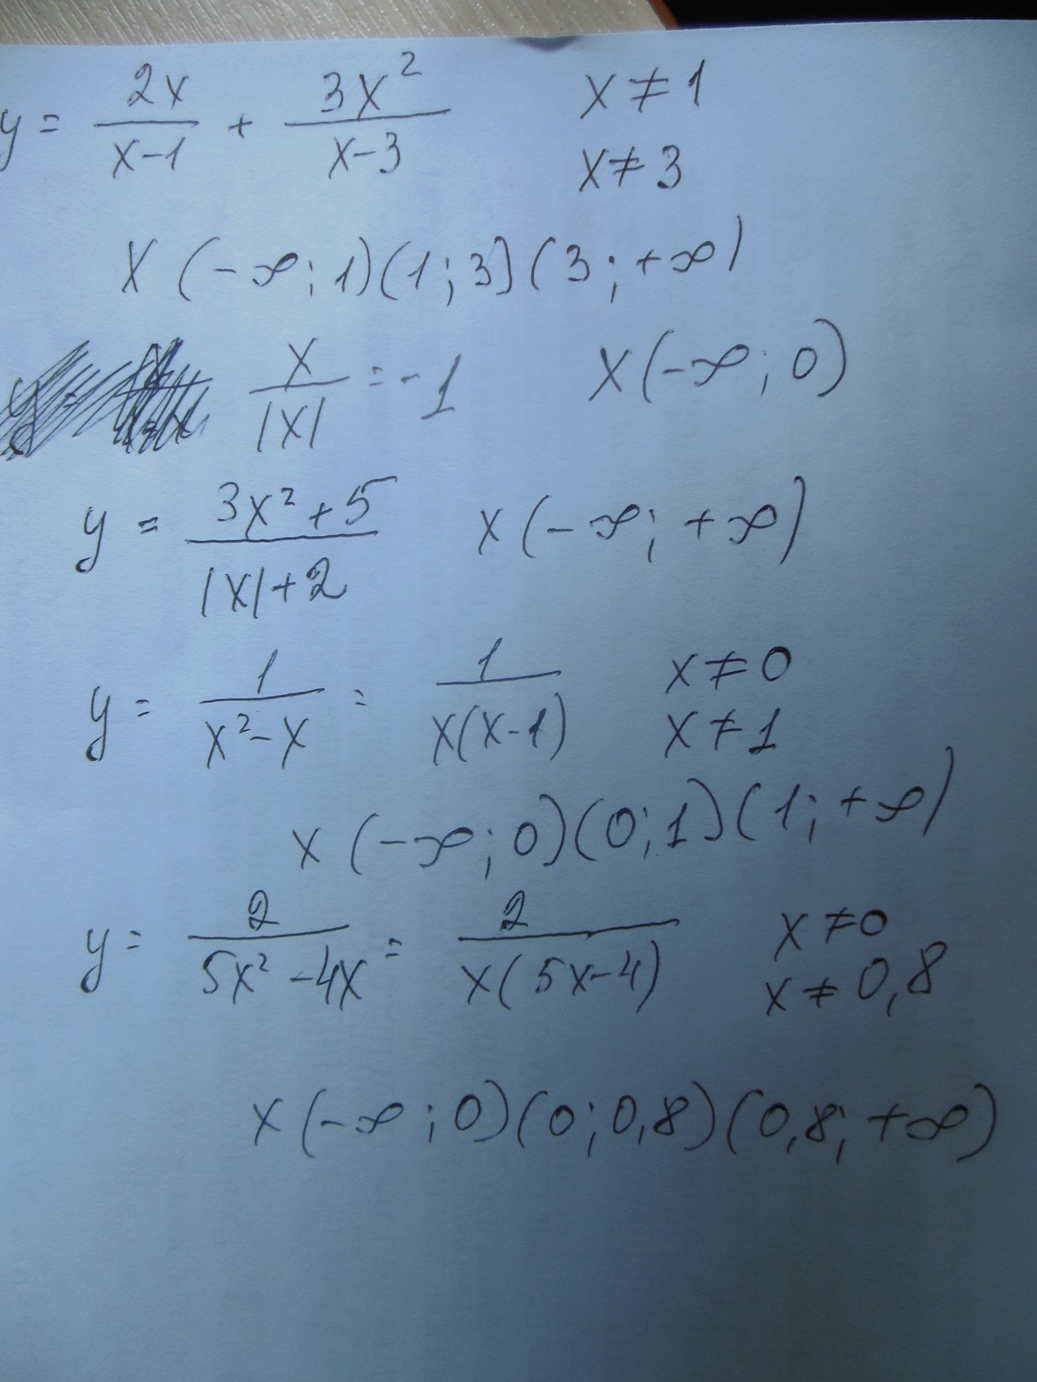 y = 2x/(x-1) + 3x²/(x-3) x ≠ 1
x ≠ 3
x (-∞; 1)(1; 3](3; +∞)
x/|x| = -1 x(-∞; 0)
y = (3x²+5)/(|x|+2) x(-∞; +∞)
y = 1/(x²-x) = 1/(x(x-1)) x ≠ 0
x ≠ 1
x (-∞; 0)(0; 1)(1; +∞)
y = 2/(5x²-4x) = 2/(x(5x-4)) x ≠ 0
x ≠ 0,8
x(-∞; 0)(0; 0,8)(0,8; +∞)